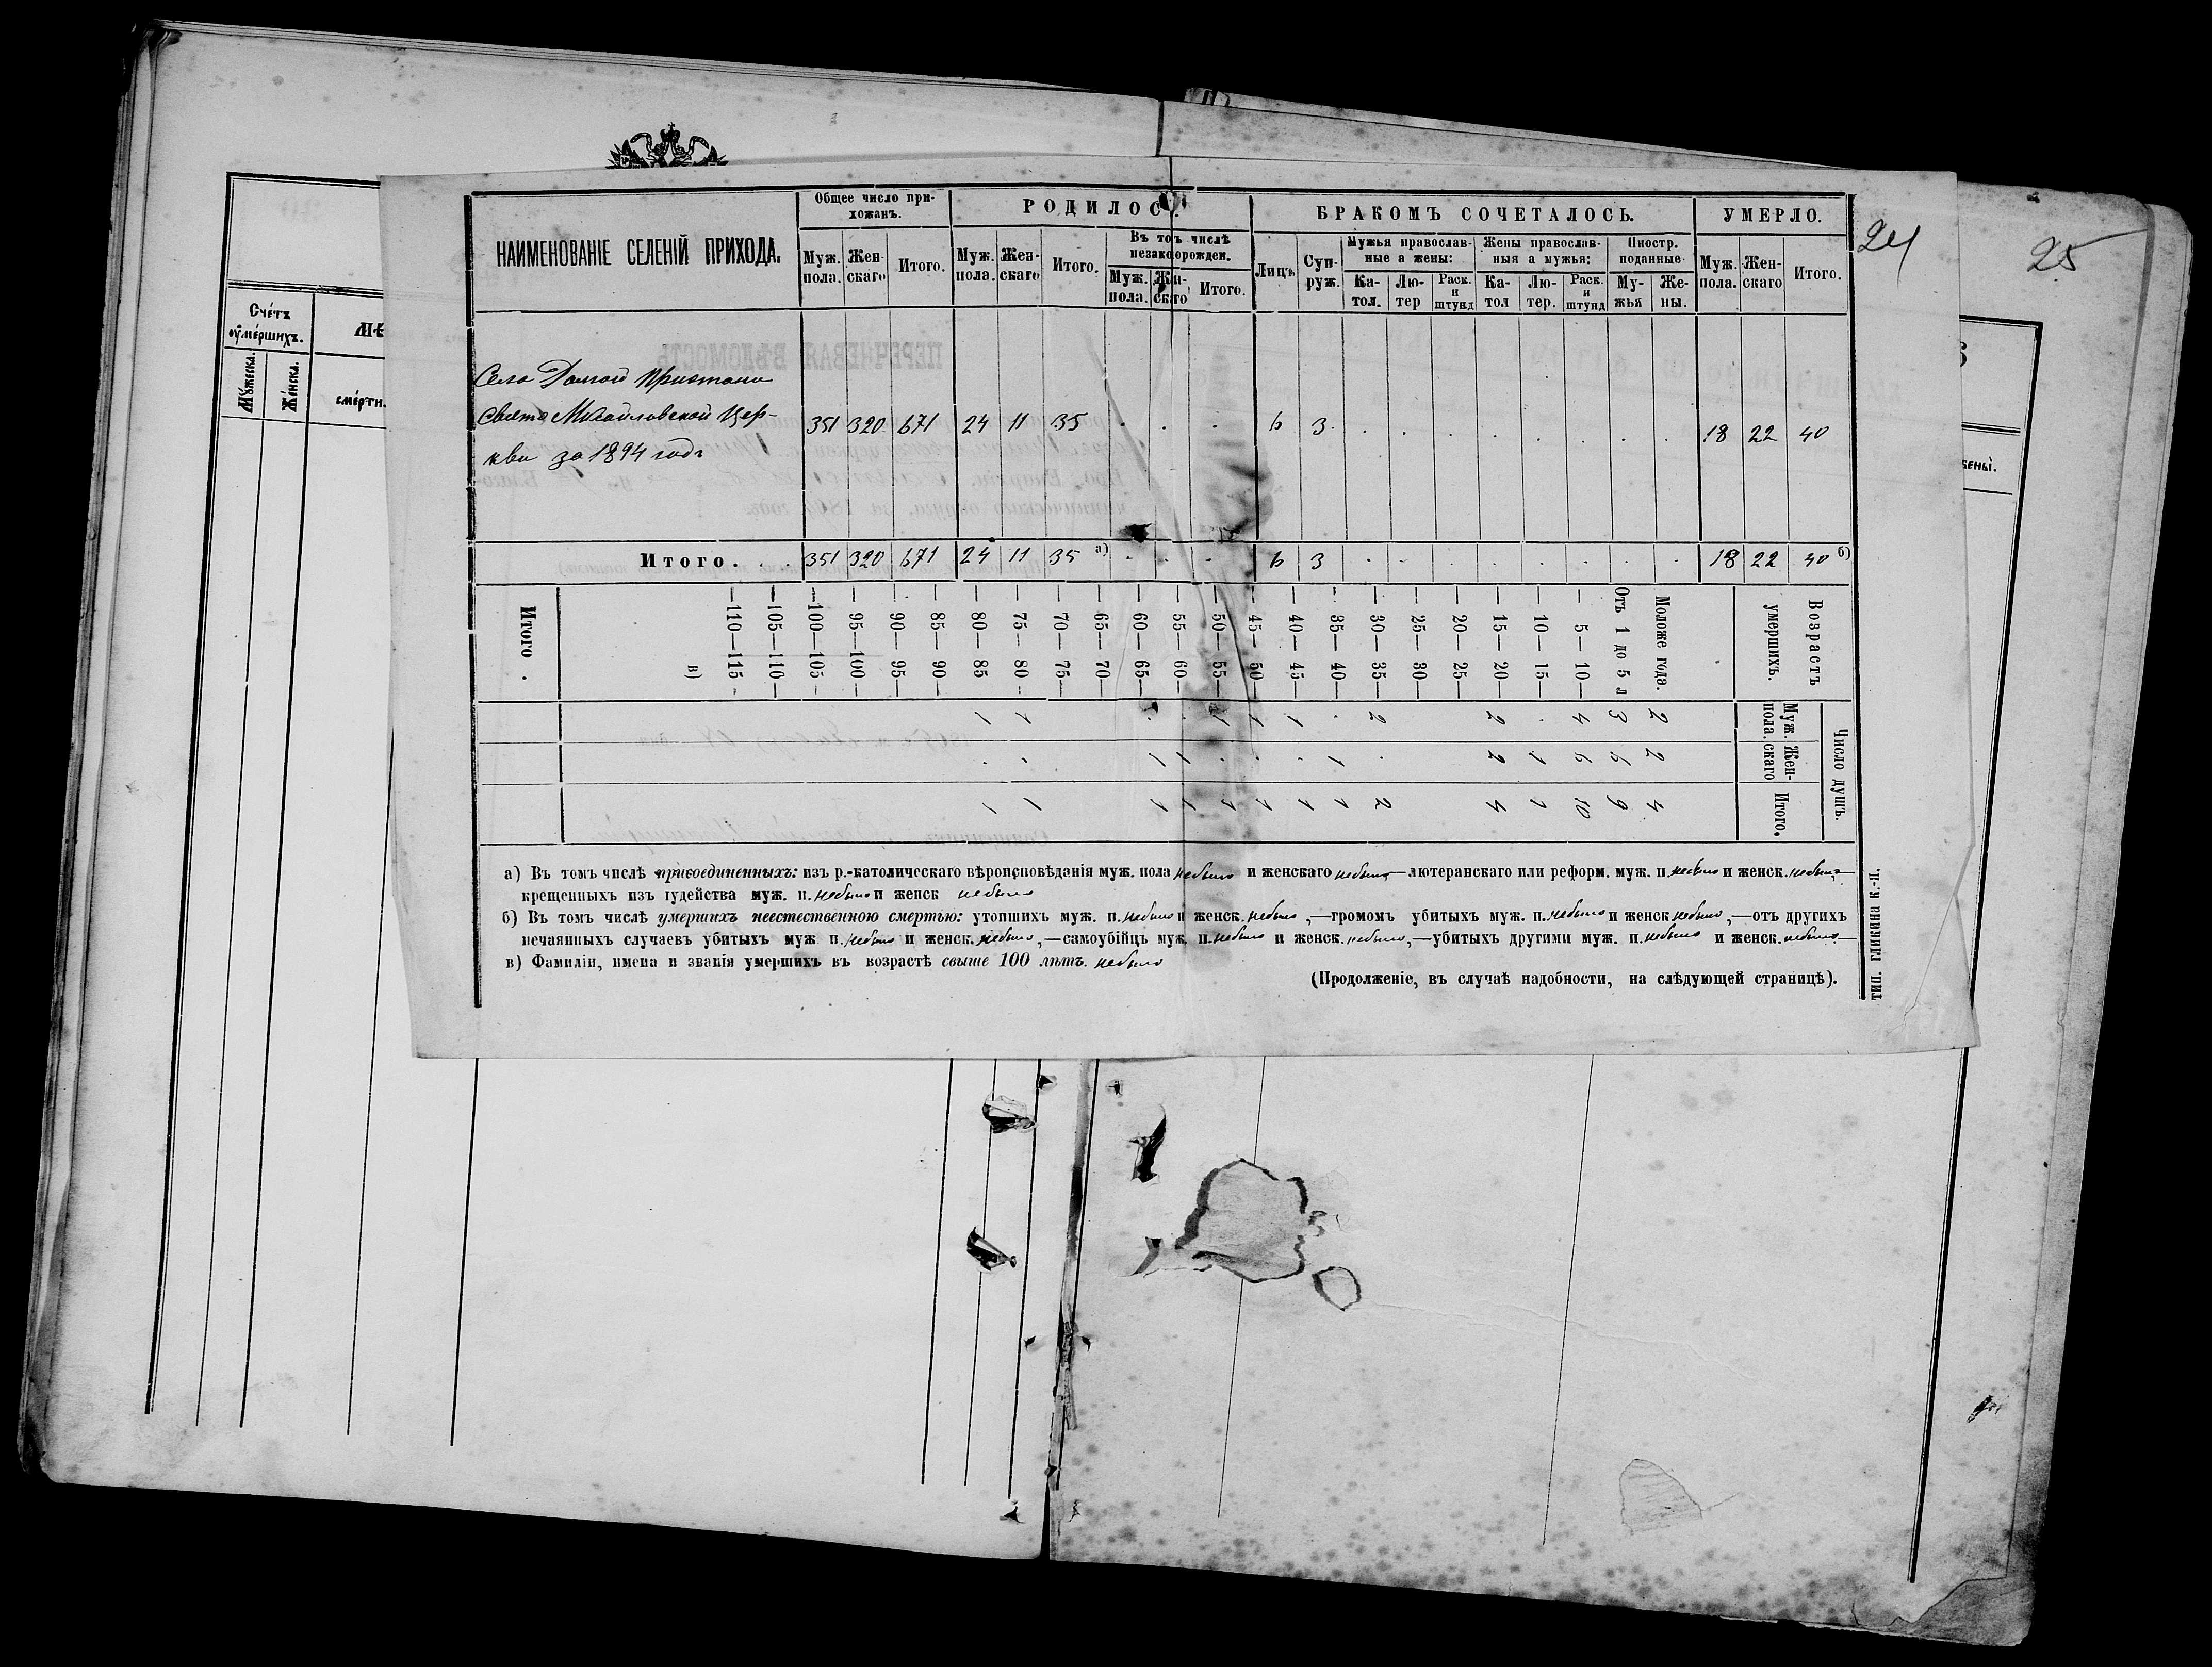 24
25
Счетъ
умершихъ.
Мужеска.
Женска.
смертн.
НАИМЕНОВАНІЕ СЕЛЕНІЙ ПРИХОДА.
Общее число при-
хожанъ.
Муж. пола.
Жен- скаго
Итого.
РОДИЛОСЬ.
Муж. пола.
Жен- скаго
Итого.
Въ томъ числѣ
незаконорожден.
Муж. пола.
Жен- скаго
Итого.
БРАКОМЪ СОЧЕТАЛОСЬ.
Лицъ.
Суп- руж.
Мужья православ-
ные а жены:
Ка- тол.
Лю- тер
Раск. и штунд
Жены православ-
ныя а мужья:
Ка- тол
Лю- тер.
Раск. и штунд
Иностр.
поданные
Му- жья
Же- ны.
УМЕРЛО.
Муж. пола.
Жен- скаго
Итого.
Села Долгой Пристани
Свято Михайловской Цер-
кви за 1894 годъ
351 320 671 24 11 35 . . . 6 3 . . . . . . . . 18 22 40
Итого. . . 351 320 671 24 11 35 а) . . . 6 3 . . . . . . . . 18 22 40 б)
Возрастъ
умершихъ.
Число душъ.
Муж. пола.
Жен- скаго
Итого.
Моложе года. 2 2 4
Отъ 1 до 5 л 3 6 9
— 5—10— 4 6 10
— 10—15— . 1 1
— 15—20— 2 2 4
— 20—25—
— 25—30—
— 30—35— 2 . 2
— 35—40— . 1 1
— 40—45— 1 . 1
— 45—50— 1 . 1
— 50—55— 1 . 1
— 55—60— . 1 1
— 60—65— . 1 1
— 65—70—
— 70—75—
— 75—80— 1 . 1
— 80—85 1 . 1
— 85—90—
— 90—95
— 95—100—
—100—105—
—105—110—
—110—115—
в)
Итого .
а) Въ томъ числѣ присоединенныхъ: изъ р.-католическаго вѣроисповѣданія муж. пола небыло и женскаго небыло—лютеранскаго или реформ. муж. п. небыло и женск. небыло,—
крещенныхъ изъ іудейства муж. п. небыло и женск небыло
б) Въ томъ числѣ умершихъ неестественною смертью: утопшихъ муж. п. небыло и женск. небыло,—громомъ убитыхъ муж. п. небыло и женск небыло,—отъ другихъ
нечаянныхъ случаевъ убитыхъ муж п. небыло и женск. небыло,—самоубійцъ муж. п. небыло и женск. небыло,—убитыхъ другими муж. п. небыло и женск. небыло—
в) Фамиліи, имена и званія умершихъ въ возрастѣ свыше 100 лѣтъ. небыло
(Продолженіе, въ случаѣ надобности, на слѣдующей страницѣ).
ТИП. ГЛИКИНА К.-П.